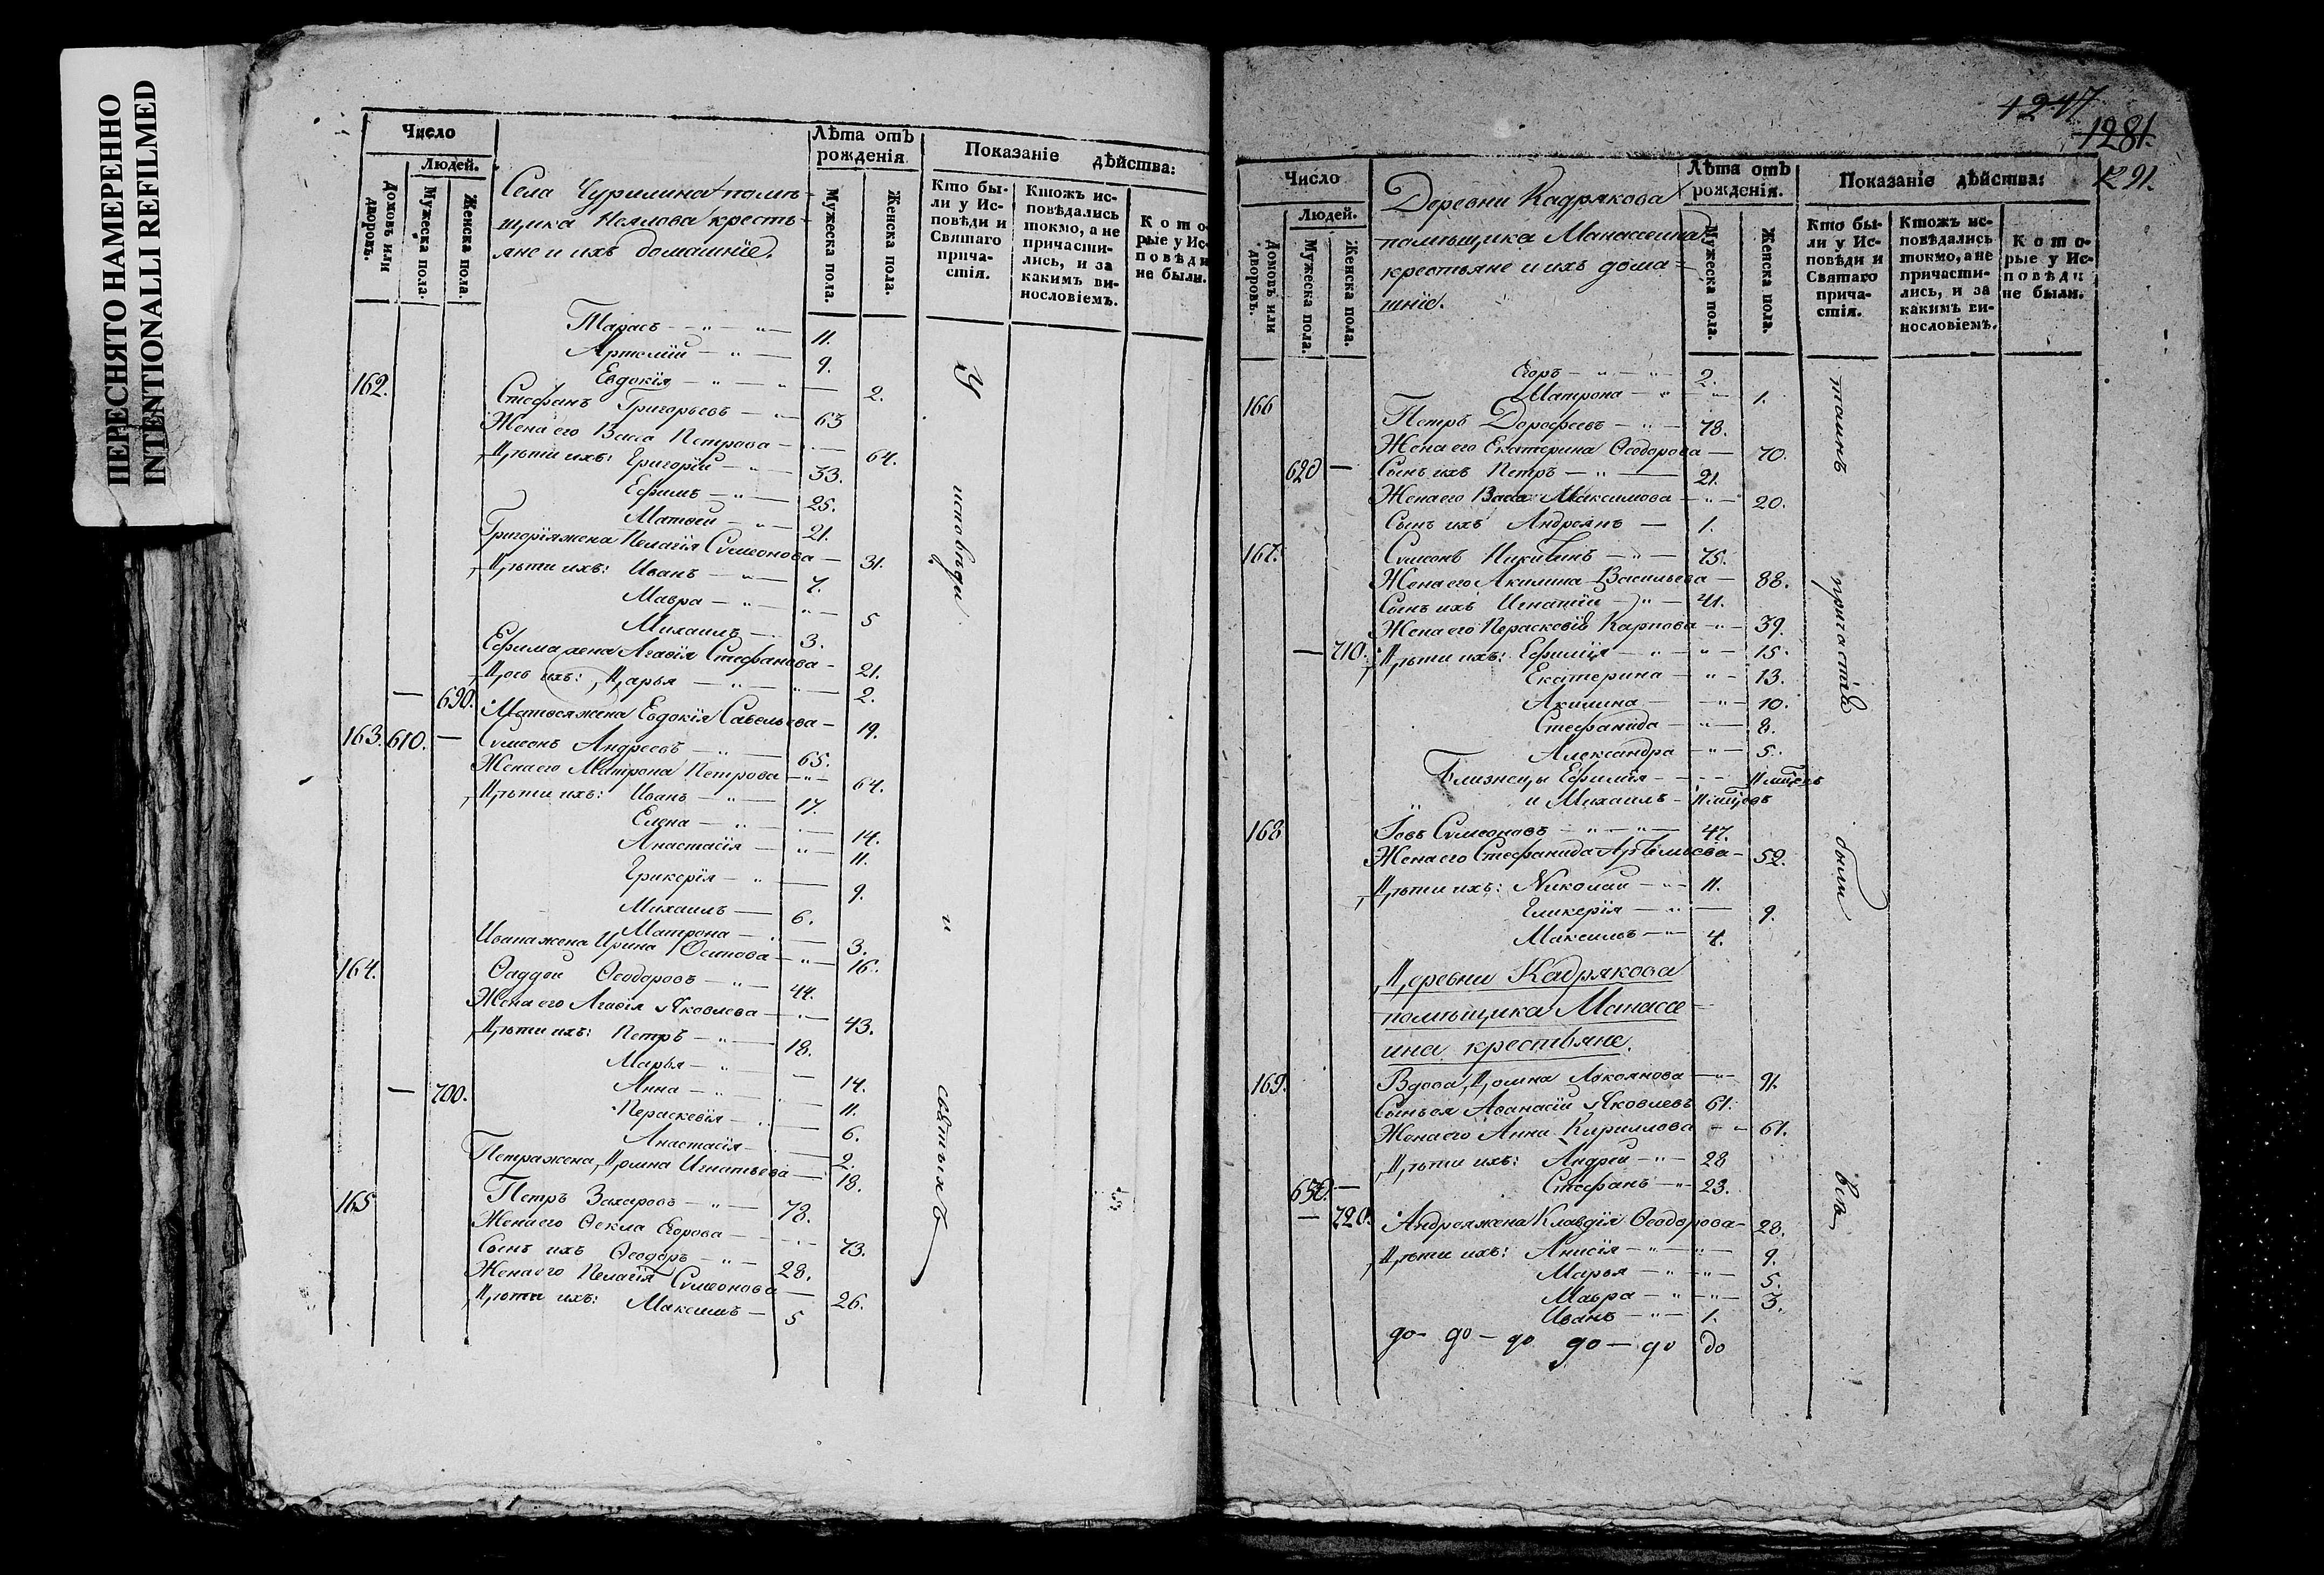 ПЕРЕСНЯТО НАМЕРЕННО
INTENTIONALLI REFILMED
Число
Людей.
Домовъ или дворовъ.
Мужеска пола.
Женска пола.
Села Чурилина помѣ-
щика крестья-
яне и ихъ домашніе.
Лѣта отъ рожденія
Мужеска пола.
Женска пола.
Показаніе дѣйства:
Кто бы-
ли у Ис-
повѣди и
Святаго
прича-
стія.
Ктожъ ис-
повѣдались
токмо, а не
причасти-
лись, и за
какимъ ви-
нословіемъ.
Кото-
рые у Ис-
повѣди
не были.
Тарасъ — " — " — 11.
Артемій — " — 9.
Евдокія — " — " — 2.
162. Стефанъ Григорьевъ — " — 63
Жена его Васса Петрова — 64.
Дѣти ихъ: Григорій — " — 33.
Ефимъ — " — 25.
Матвей — " — 21.
Григорія жена Пелагія Сумеонова — 31.
Дѣти ихъ: Иванъ — " — 7.
Мавра — " — " — 5
Михаилъ — 3.
Ефима жена Агафія Стефанова — 21.
Дочь ихъ: Дарья — " — " — 2.
— 690. Матвея жена Евдокія Савельева — 19.
163. 610. — Сумеонъ Андреевъ — " — 65.
Жена его Матрона Петрова — " — 64.
Дѣти ихъ: Иванъ — " — 17.
Елена — " — 14.
Анастасія — " — 11.
Гликерія — " — 9.
Михаилъ — 6.
Матрона — 3.
Ивана жена Ирина Осипова — " — 16.
164. Фаддей Ѳеодоровъ — " — 44.
Жена его Агафія Яковлева — " — 43.
Дѣти ихъ: Петръ — " — 18.
Марья — " — 14.
— 700. Анна — " — 11.
Параскевія — 6.
Анастасія — 2.
Петра жена Домна Игнатьева — 18.
165 Петръ Захаровъ — " — 78.
Жена его Ѳекла Егорова — 73.
Сынъ ихъ Ѳеодоръ — " — 28.
Жена его Пелагія Сумеонова — 26.
Дѣти ихъ: Максимъ — 5
У
исповѣди
и
святыхъ
1247
1281.
1291.
Число
Людей.
Домовъ или дворовъ.
Мужеска пола.
Женска пола.
Деревни Кадрякова
помѣщика Манассеина
крестьяне и ихъ дома-
шніе.
Лѣта отъ рожденія.
Мужеска пола.
Женска пола.
Показаніе дѣйства:
Кто бы-
ли у Ис-
повѣди и
Святаго
прича-
стія.
Ктожъ ис-
повѣдались
токмо, а не
причасти-
лись, и за
какимъ ви-
нословіемъ.
Кото-
рые у Ис-
повѣди
не были.
Егоръ — " — " — 2.
Матрона — " — " — 1.
166 Петръ Дорофеевъ — " — 78.
Жена его Екатерина Ѳеодорова — 70.
620 — Сынъ ихъ Петръ — " — 21.
Жена его Васса Максимова — " — 20.
Сынъ ихъ Андреянъ — 1.
167. Сумеонъ Никитинъ — " — 75.
Жена его Акилина Васильева — 88.
Сынъ ихъ Игнатій — " — 41.
Жена его Перасковія Карпова — " — 39.
— 710. Дѣти ихъ: Ефимія — " — " — 15.
Екатерина — " — 13.
Акилина — " — 10.
Стефанида — " — 8.
Александра — " — 5.
Близнецы Ефимія
и Михаилъ
168 Іовъ Сумеоновъ — " — " — 47.
Жена его Стефанида Артемьева — 52.
Дѣти ихъ: Николай — " — 11.
Гликерія — " — 9.
Максимъ — " — 4.
Деревни Кадрякова
помѣщика Манасе-
ина крестьяне.
169. Вдова Домна Лукоянова — " — 91.
Сынъ ея Аѳанасій Яковлевъ 61.
Жена его Анна Кириллова — " — 61.
Дѣти ихъ: Андрей — " — 28
630. — Стефанъ — " — 23.
— 720. Андрея жена Клавдія Ѳеодорова — 28.
Дѣти ихъ: Анисія — " — " — 9.
Марья — " — " — 5.
Мавра — " — " — 3.
Иванъ — " — 1.
до — до — до до — до до
таинъ
причастія
были
всѣ